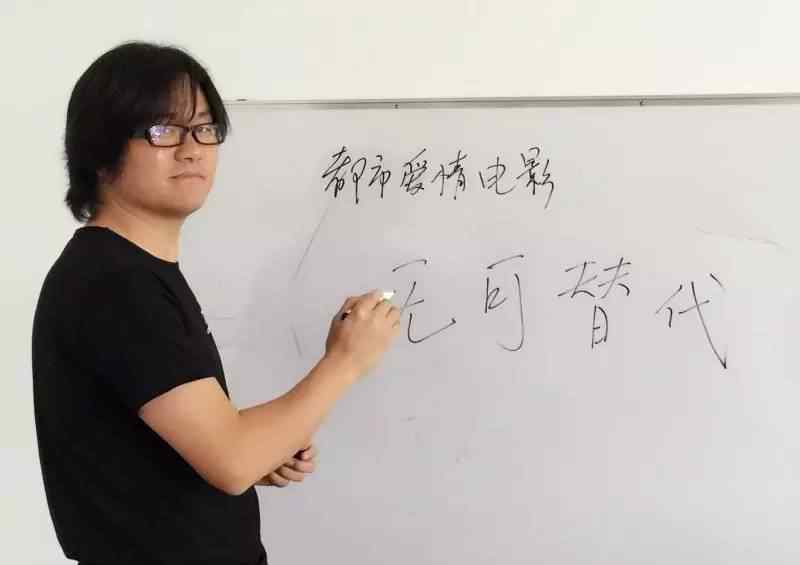 都市爱情电影
无可替代